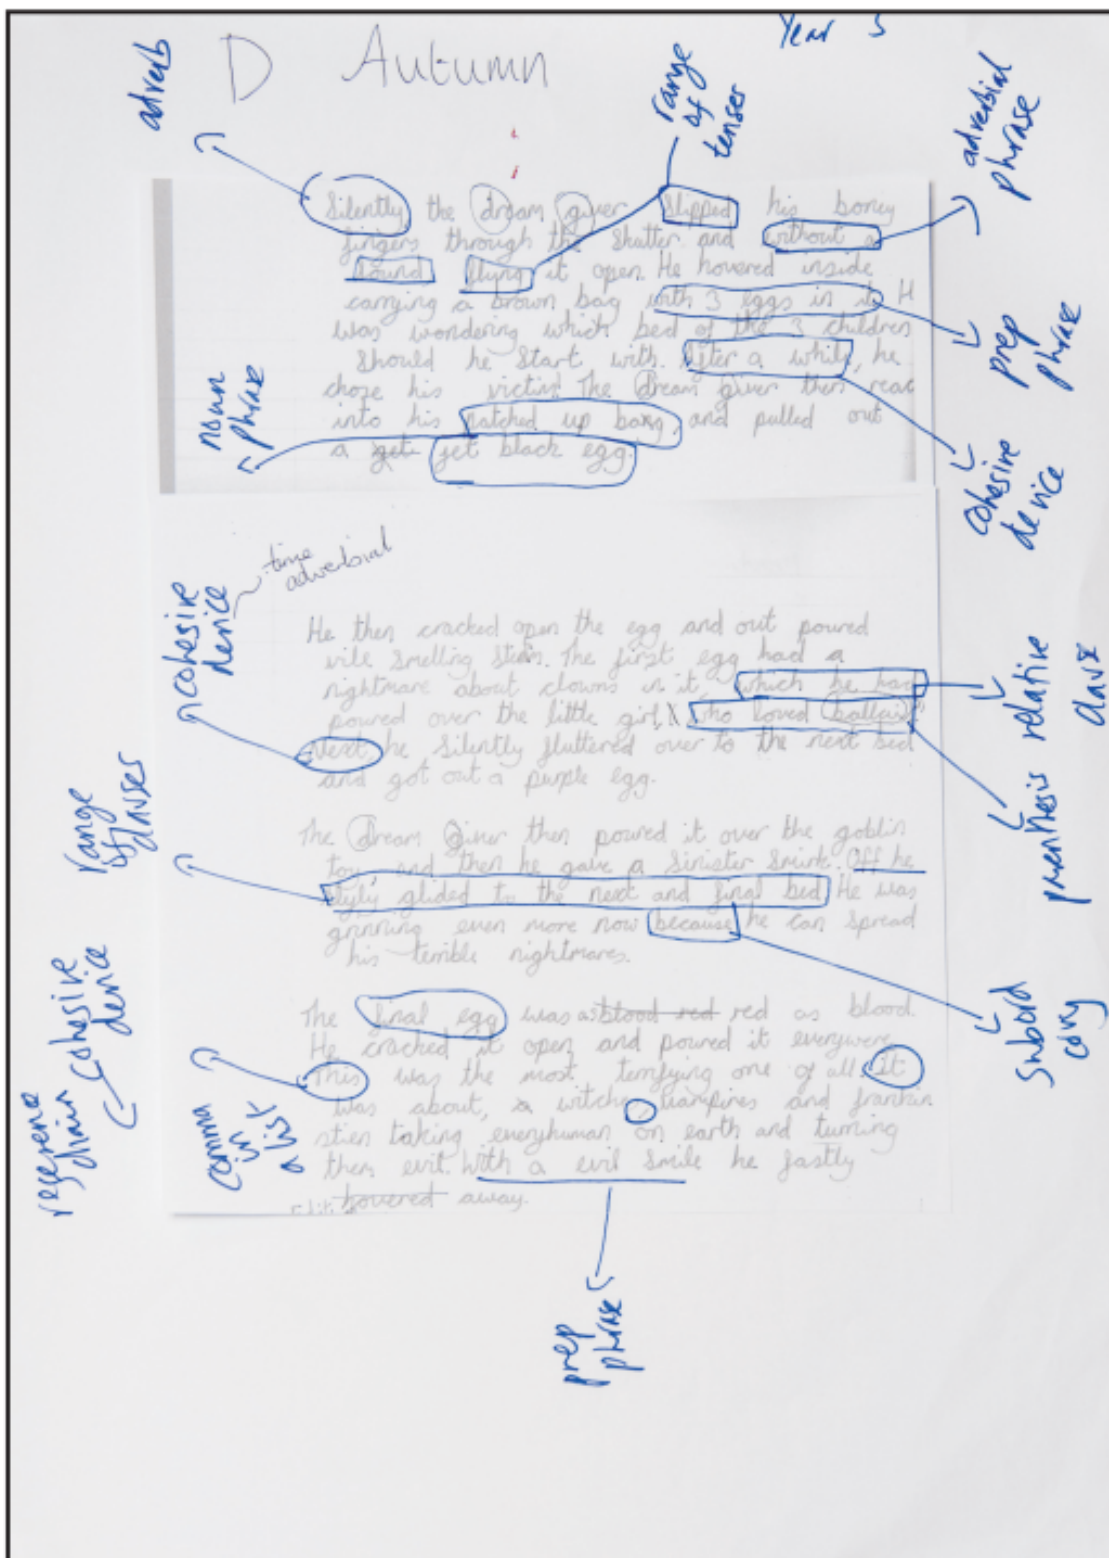 Year 5
D Autumn
adverb
range of tenses
adverbial phrase
Silently the dream giver slipped his boney
fingers through the shutter and without a
sound flung it open. He hovered inside
carrying a brown bag with 3 eggs in it. H
was wondering which bed of the 3 children
should he start with. After a while, he
chose his victim. The Dream Giver then reac
into his patched up bag, and pulled out
a jet black egg.
noun phrase
prep phrase
cohesive device
time adverbial
cohesive device
He then cracked open the egg and out poured
vile smelling The first egg had a
nightmare about clowns in it, which he had
poured over the little girl, who loved
Next he silently fluttered over to the next bed
and got out a purple egg.
relative clause
parenthesis
range of clauses
The Dream Giver then poured it over the goblin
toy, and then he gave a sinister smirk. Off he
slyly glided to the next and final bed. He was
grinning even more now because he can spread
his terrible nightmares.
subord conj
The final egg was as blood red red as blood.
He cracked it open and poured it everywere
This was the most terrifying one of all. It
was about, witche, vampires and frankin
stien taking everyhuman on earth and turning
them evil. With a evil smile he fastly
hovered away.
cohesive device
chain
comma in a list
prep phrase